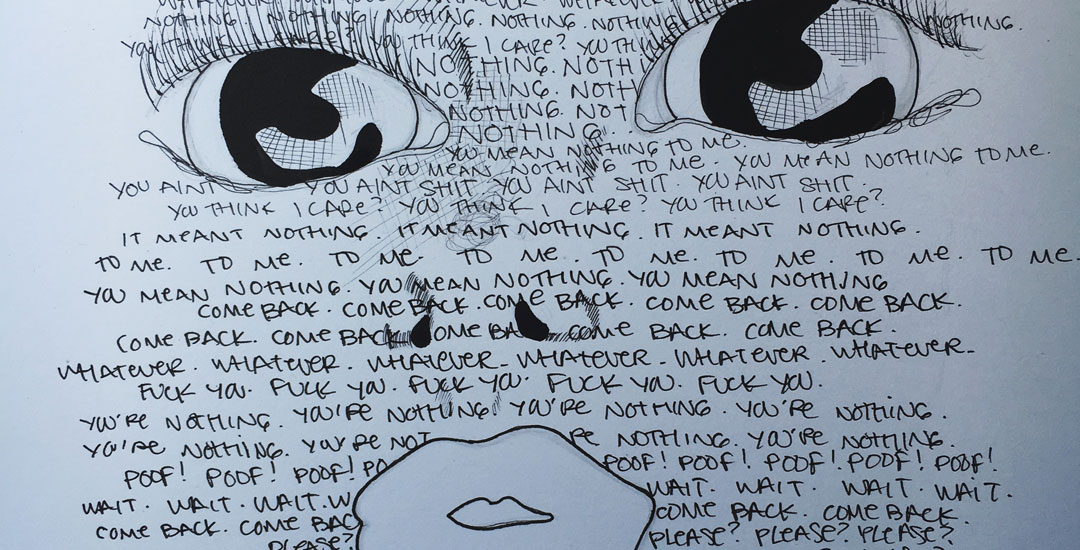 WHATEVER WHATEVER
NOTHING. NOTHING. NOTHING. NOTHING. NOTHING. NOTHING.
YOU THINK I CARE? YOU THINK I CARE? YOU THINK
NOTHING. NOTHI
NOTHING. NOTH
NOTHING. NOT
NOTHING.
YOU MEAN NOTHING TO ME.
YOU MEAN NOTHING TO ME. YOU MEAN NOTHING TO ME.
YOU AINT YOU AINT SHIT. YOU AINT SHIT. YOU AINT SHIT.
YOU THINK I CARE? YOU THINK I CARE? YOU THINK I CARE?
IT MEANT NOTHING. IT MEANT NOTHING. IT MEANT NOTHING.
TO ME. TO ME. TO ME. TO ME. TO ME. TO ME. TO ME. TO ME.
YOU MEAN NOTHING. YOU MEAN NOTHING. YOU MEAN NOTHING
COME BACK. COME BACK. COME BACK. COME BACK. COME BACK.
COME BACK. COME BACK. COME BACK. COME BACK. COME BACK.
WHATEVER. WHATEVER. WHATEVER. WHATEVER. WHATEVER. WHATEVER.
FUCK YOU. FUCK YOU. FUCK YOU. FUCK YOU. FUCK YOU.
YOU'RE NOTHING. YOU'RE NOTHING. YOU'RE NOTHING. YOU'RE NOTHING.
YOU'RE NOTHING. YOU'RE NOT RE NOTHING. YOU'RE NOTHING.
POOF! POOF! POOF! PO POOF! POOF! POOF! POOF! POOF!
WAIT. WAIT. WAIT. W WAIT. WAIT. WAIT. WAIT.
COME BACK. COME BAC COME BACK. COME BACK.
PLEASE? PLEASE? PLEASE? PLEASE?